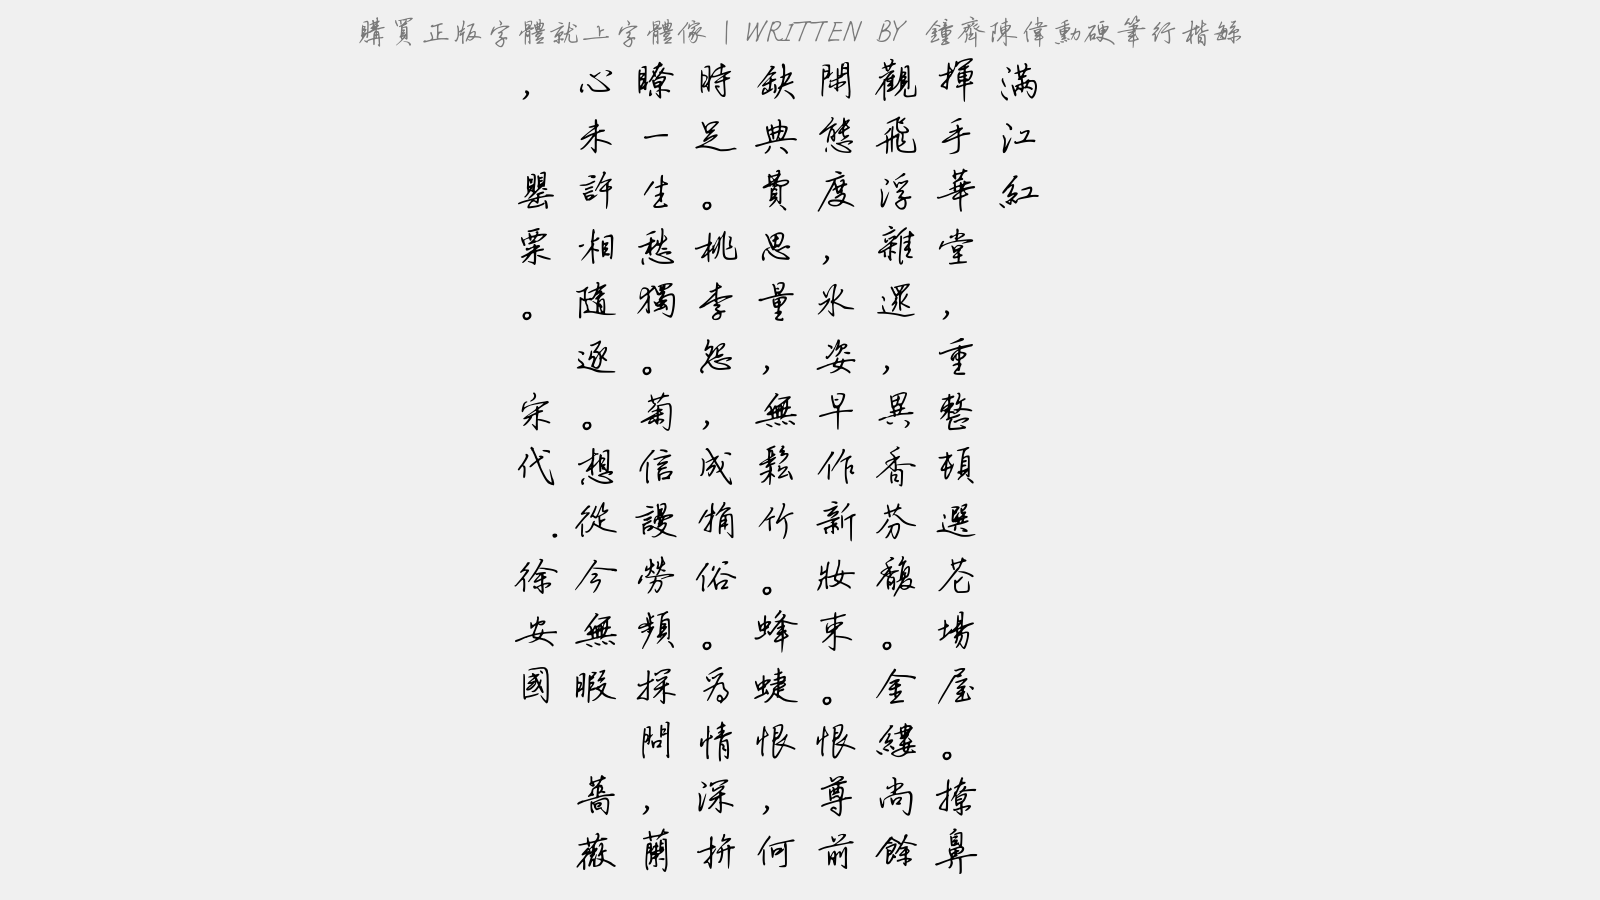 購買正版字體就上字體傢 | WRITTEN BY 鐘齊陳偉勳硬筆行楷緐
滿江紅
揮手華堂，重整頓選芲場屋。撩鼻
觀飛浮雜遝，異香芬馥。金縷尚餘
閑態度，冰姿早作新妝束。恨尊前
缺典費思量，無鬆竹。蜂蜨恨，何
時足。桃李怨，成觕俗。為情深拚
瞭一生愁獨。菊信謾勞頻探問，蘭
心未許相隨逐。想從今無暇 薔薇
，罌粟。 宋代.徐安國